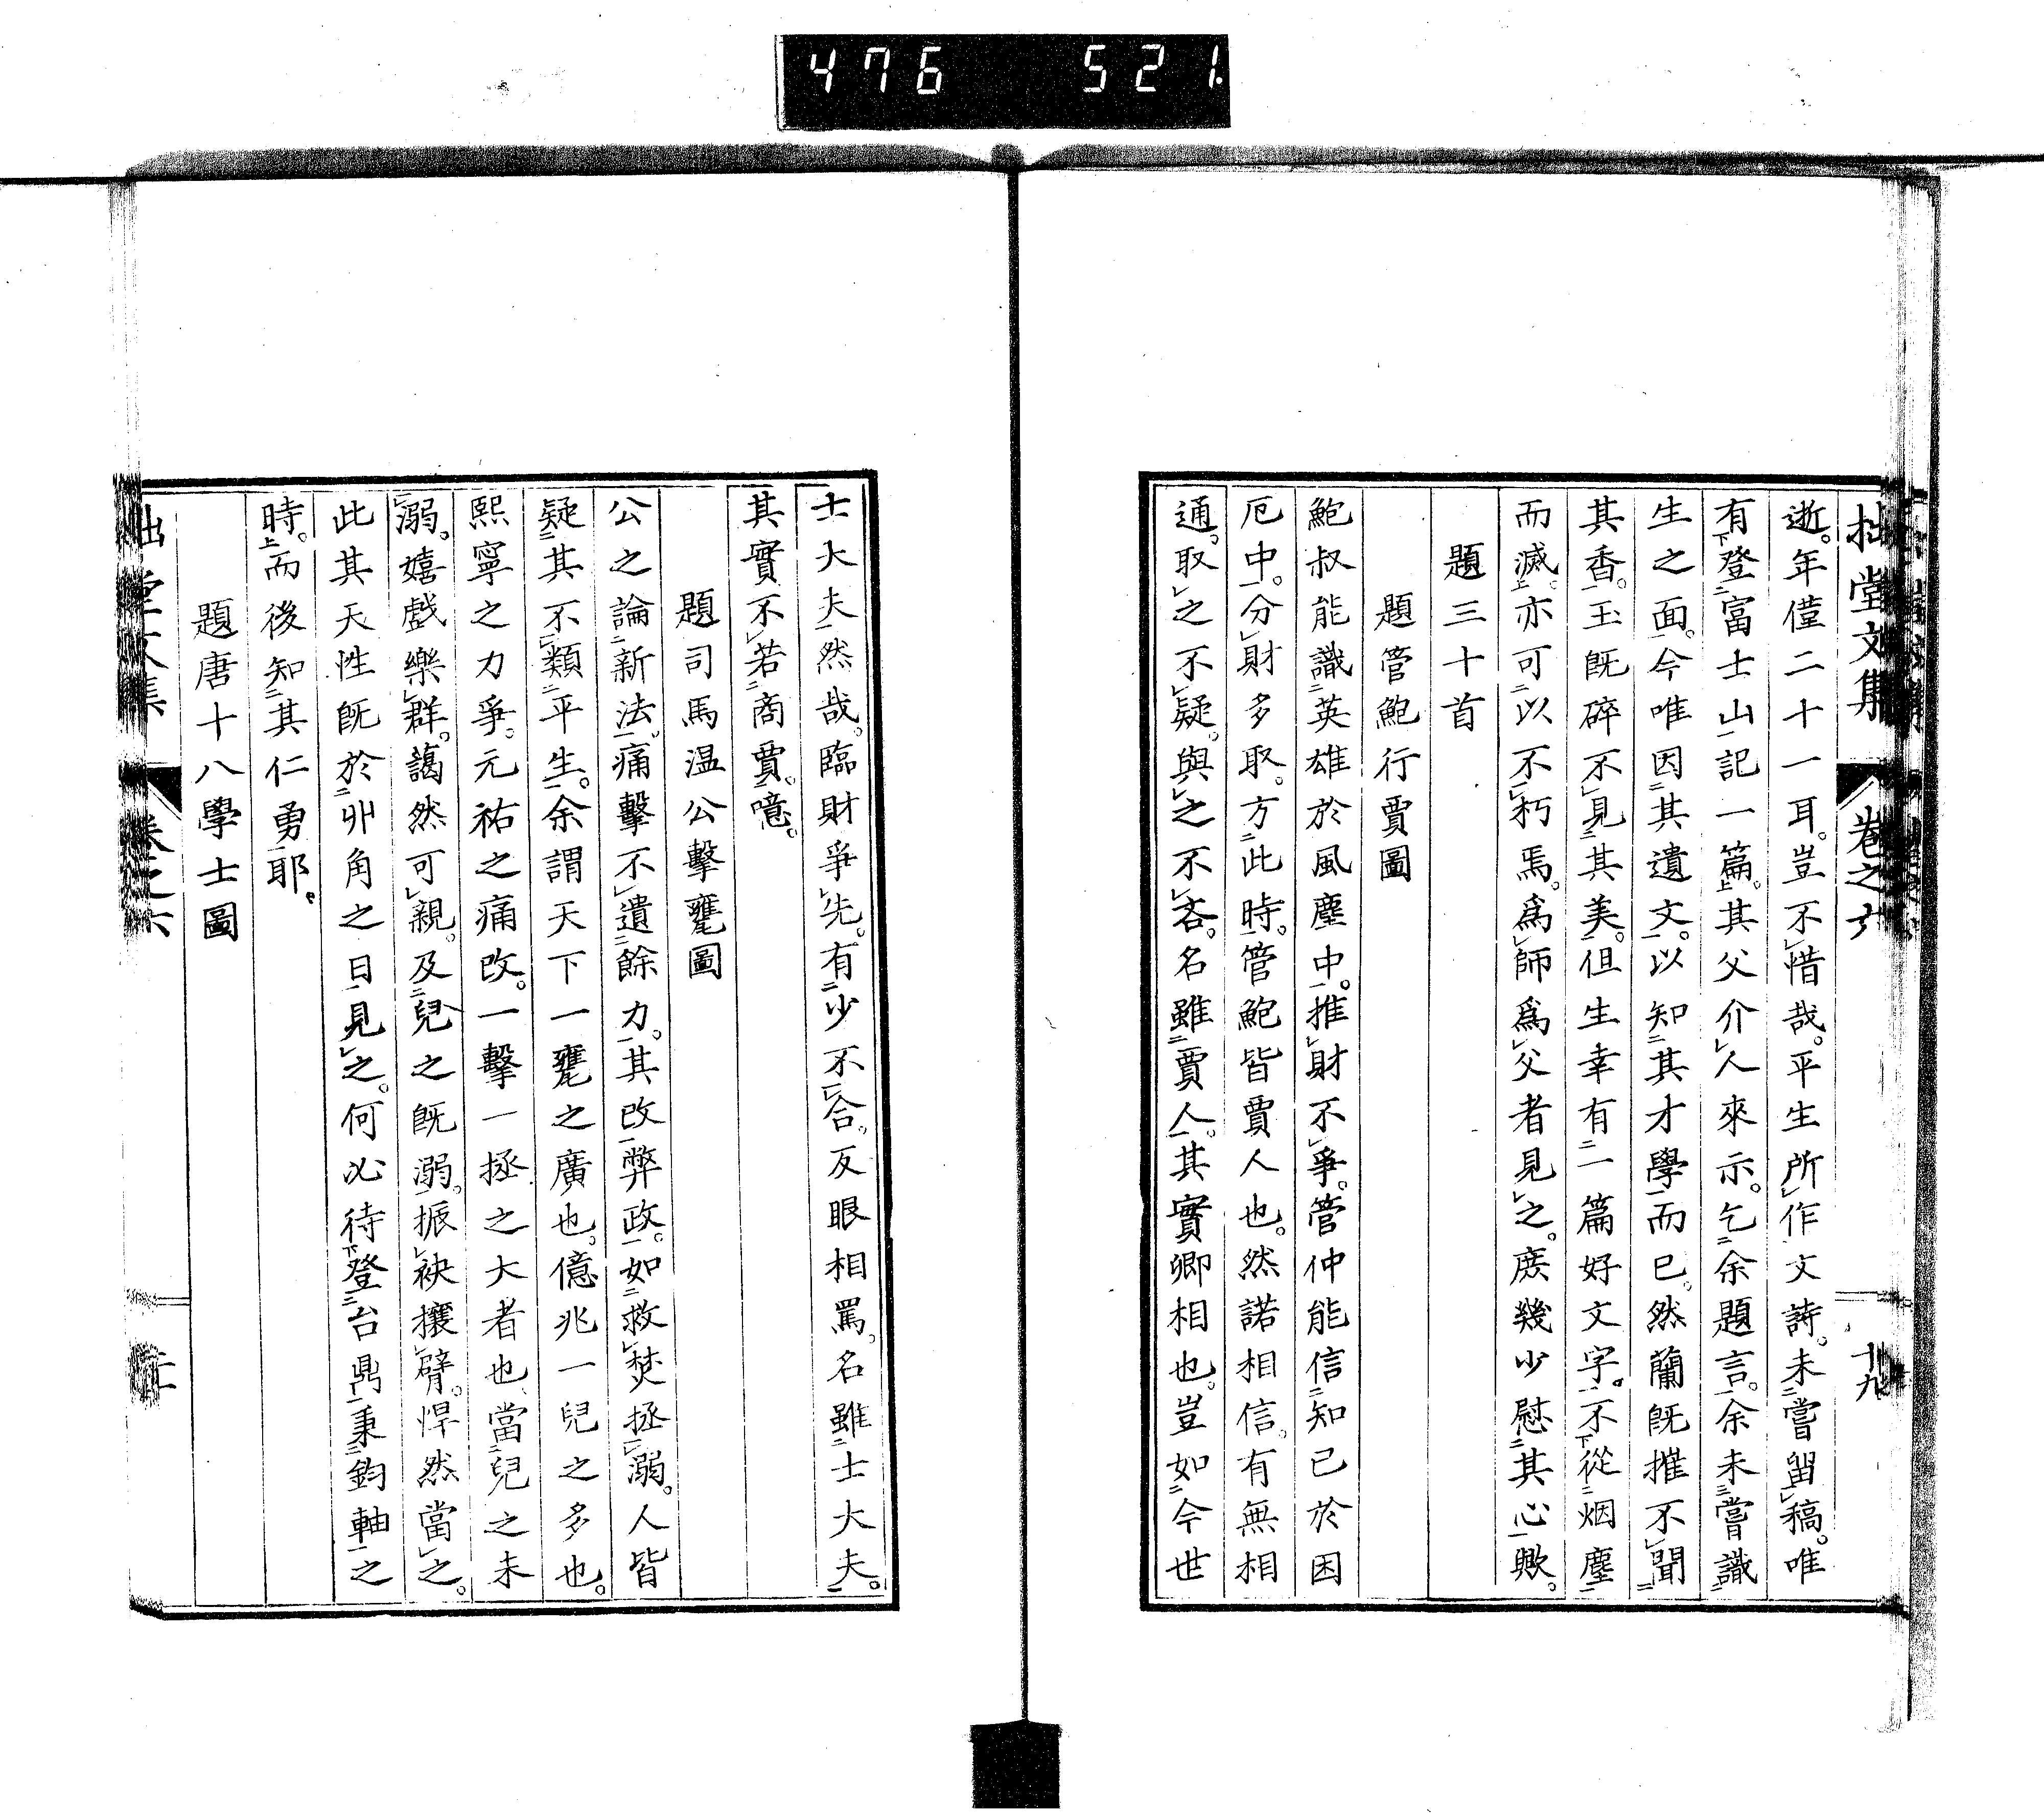 476 521.
拙堂文集 卷之六 十九
逝。年僅二十一耳。豈不惜哉。平生所作文詩。未嘗留稿。唯
有登富士山記一篇。其父介人來示。乞余題言。余未嘗識
生之面。今唯因其遺文。以知其才學而已。然蘭既摧不聞
其香。玉既碎不見其美。但生幸有一篇好文字。不從烟塵
而滅。亦可以不朽焉。爲師爲父者見之。庶幾少慰其心歟。
題三十首
題管鮑行賈圖
鮑叔能識英雄於風塵中。推財不爭。管仲能信知己於困
厄中。分財多取。方此時。管鮑皆賈人也。然諾相信。有無相
通。取之不疑。與之不吝。名雖賈人。其實卿相也。豈如今世
士大夫然哉。臨財爭先。有少不合。反眼相罵。名雖士大夫。
其實不若商賈。噫。
題司馬温公擊甕圖
公之論新法。痛擊不遺餘力。其改弊政。如救焚拯溺。人皆
疑其不類平生。余謂天下一甕之廣也。億兆一兒之多也。
熙寧之力爭。元祐之痛改。一擊一拯之大者也。當兒之未
溺。嬉戲樂群。藹然可親。及兒之既溺。振袂攘臂。悍然當之。
此其天性既於丱角之日見之。何必待登台鼎秉鈞軸之
時。而後知其仁勇耶。
題唐十八學士圖
拙堂文集 卷之六